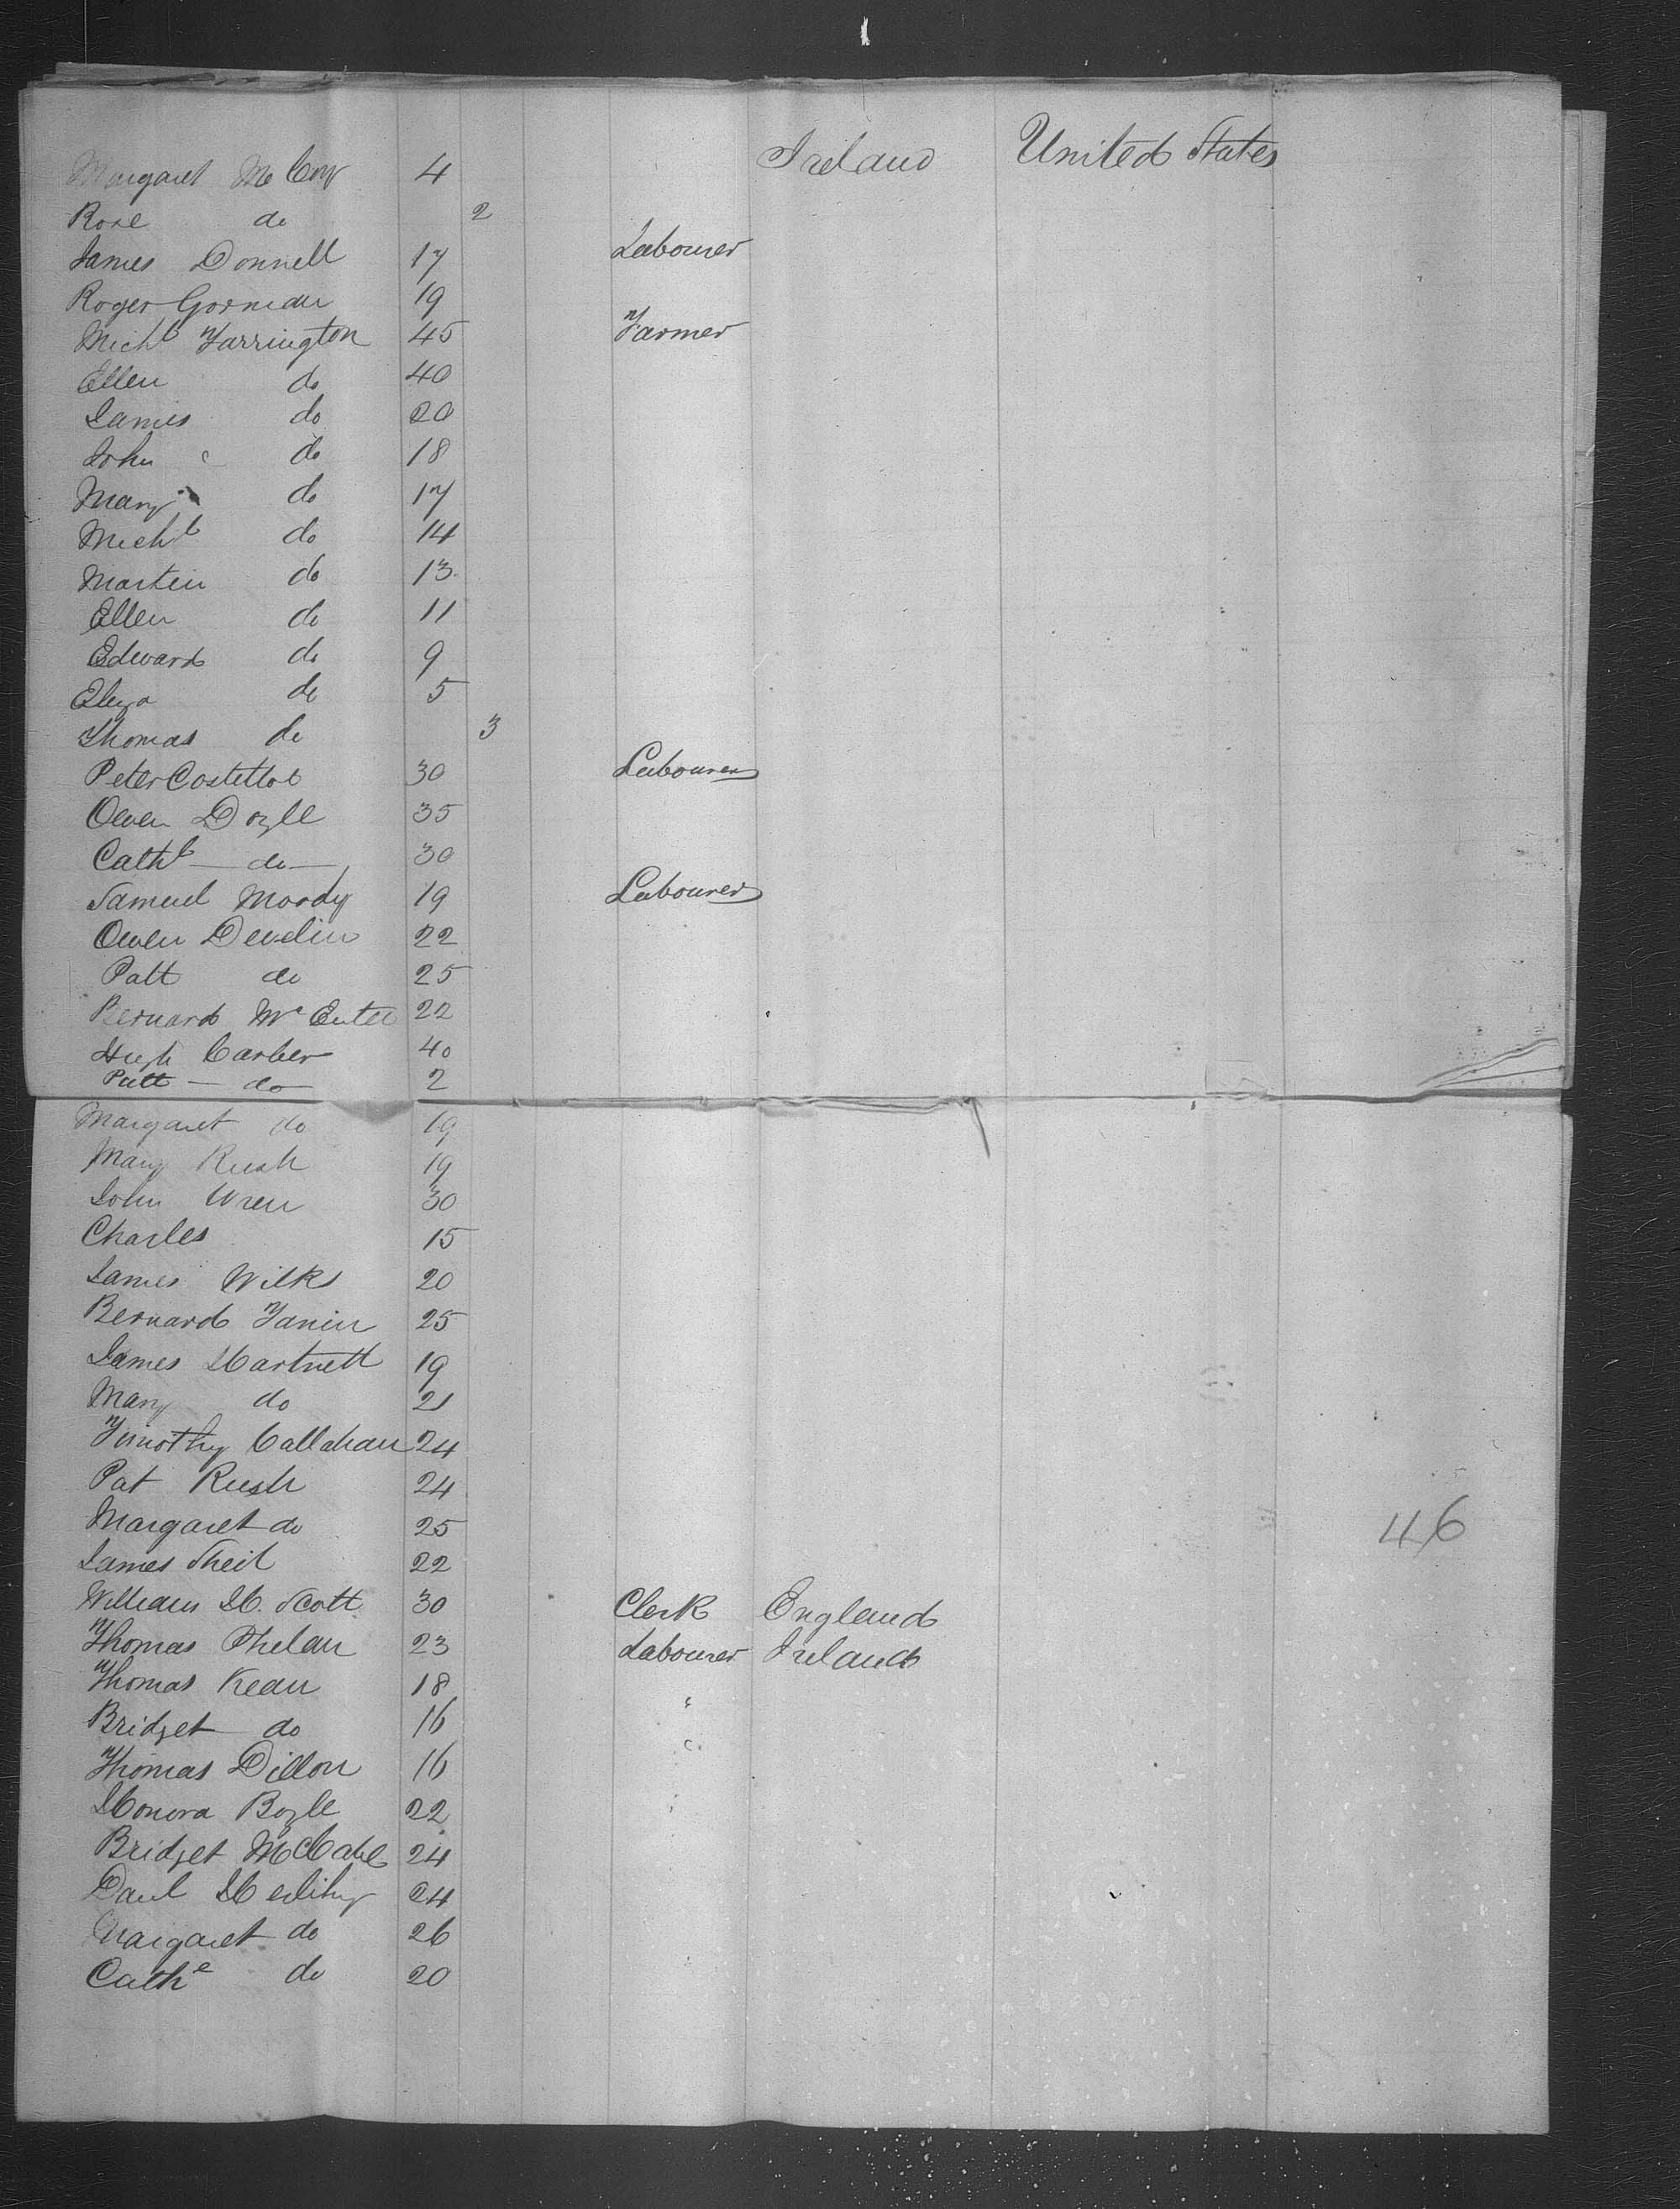 Margaret McCoy 4 Ireland United States
Rose do 2
James Donnell 17 Labourer
Roger Gorman 19
Michl Farrington 45 Farmer
Ellen do 40
James do 20
John do 18
Mary do 17
Michl do 14
Martin do 13
Ellen do 11
Edward do 9
Eliza do 5
Thomas do 3
Peter Costelloe 30 Labourer
Owen Doyle 35
Cath do 30
Samuel Moody 19 Labourer
Owen Develin 22
Patt do 25
Bernard McEntee 22
Hugh Carber 40
Patt do 2
Margaret do 19
Mary Rush 19
John Wren 30
Charles 15
James Wilks 20
Bernard Fanin 25
James Hartnett 19
Mary do 21
Timothy Callahan 24
Pat Rush 24
Margaret do 25 46
James Sheil 22
William H. Scott 30 Clerk England
Thomas Phelan 23 Labourer Ireland
Thomas Kean 18 "
Bridget do 16
Thomas Dillon 16
Honora Boyle 22
Bridget McCabe 24
Danl Herlihy 24
Margaret do 26
Cathe do 20